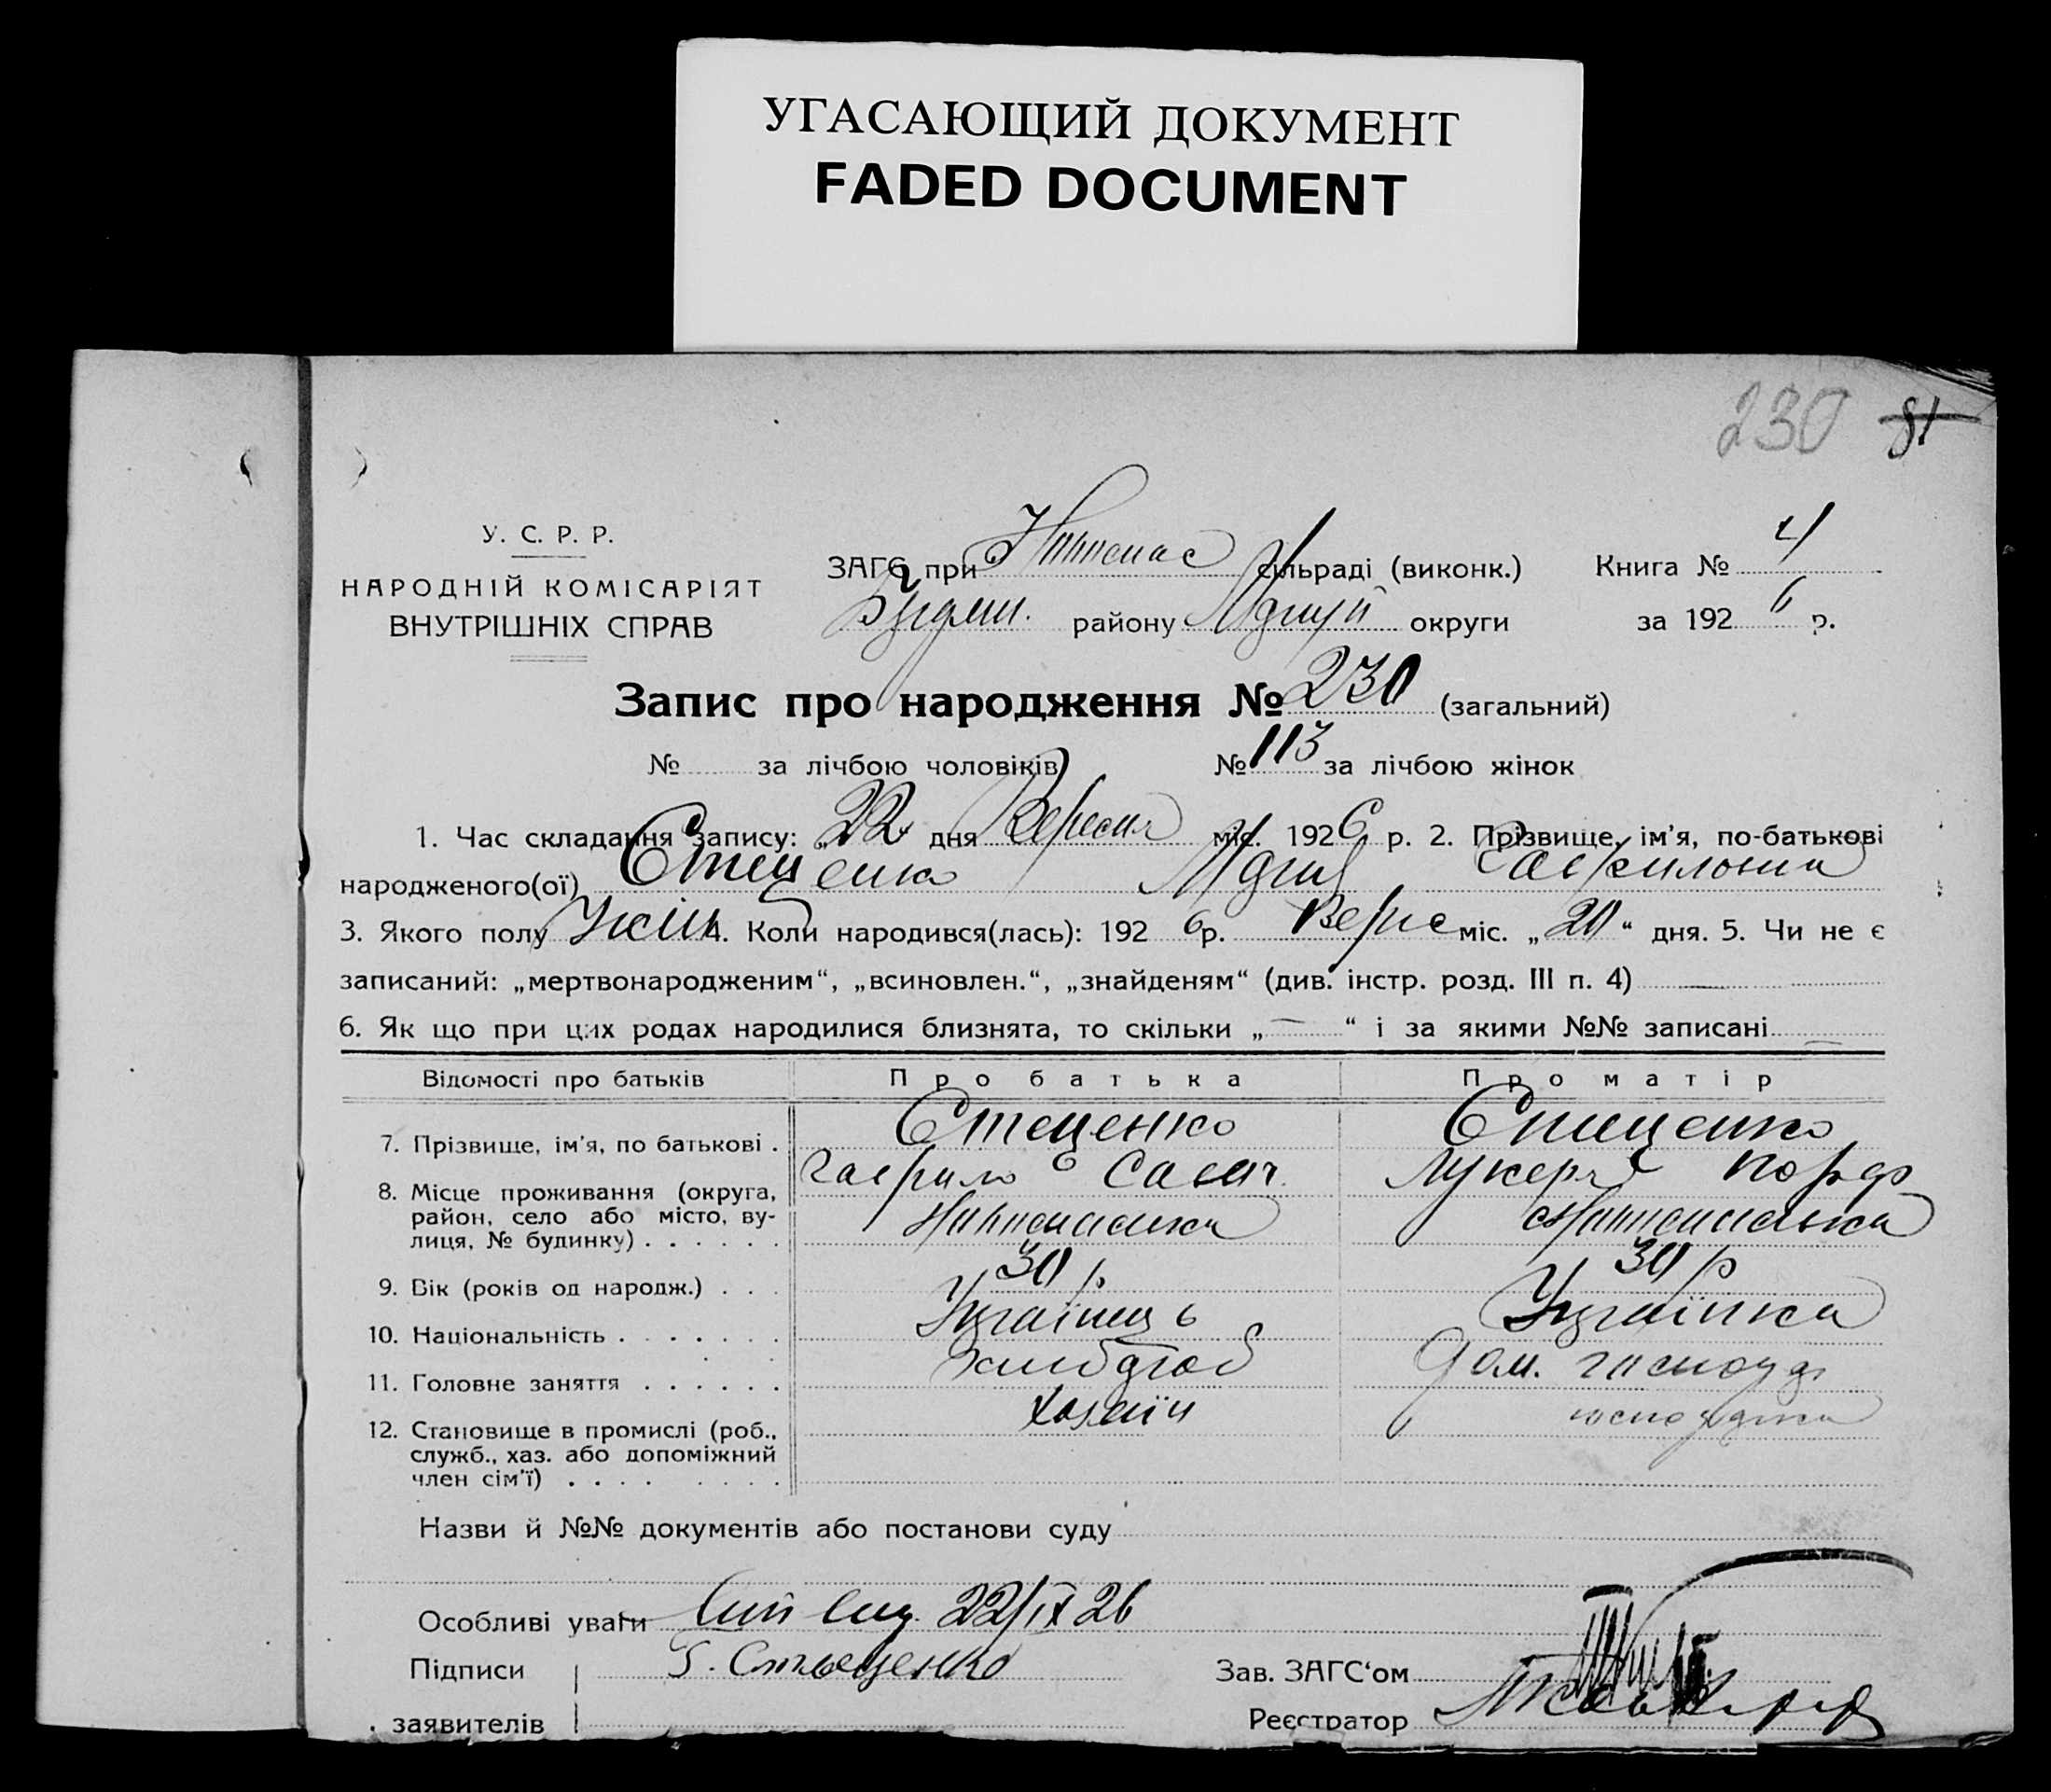 УГАСАЮЩИЙ ДОКУМЕНТ
FADED DOCUMENT
230 81
У. С. Р. Р.
НАРОДНІЙ КОМІСАРІЯТ
ВНУТРІШНІХ СПРАВ
ЗАГС при сільраді (виконк.) Книга № 4
району округи за 1926 р.
Запис про народження № 230 (загальний)
№ за лічбою чоловіків № 113 за лічбою жінок
1. Час складання запису: „22 дня Вересня міс. 1926 р. 2. Прізвище, ім'я, по-батькові
народженого(ої) Стеценко
3. Якого полу Жін 4. Коли народився(лась): 1926 р. Верис міс. „20“ дня. 5. Чи не є
записаний: „мертвонародженим“, „всиновлен.“, „знайденям“ (див. інстр. розд. III п. 4)
6. Як що при цих родах народилися близнята, то скільки „—“ і за якими №№ записані —
Відомості про батьків Про батька Про матір
7. Прізвище, ім'я, по батькові . Стеценко Стеценко
Гаврило Савич Лукеря Порф
8. Місце проживання (округа,
район, село або місто, ву-
лиця, № будинку) . . . . . .
9. Вік (років од народж.) . . . 30 р 30 р
10. Національність . . . . . . . Українець Українка
11. Головне заняття . . . . . . Хлібороб Дом. господ
12. Становище в промислі (роб., Хазяїн
служб., хаз. або допоміжний
член сім'ї) . . . . . . . .
Назви й №№ документів або постанови суду
Особливі уваги 22/IX 26
Підписи Г. Стьеценко Зав. ЗАГС'ом
заявителів Реєстратор